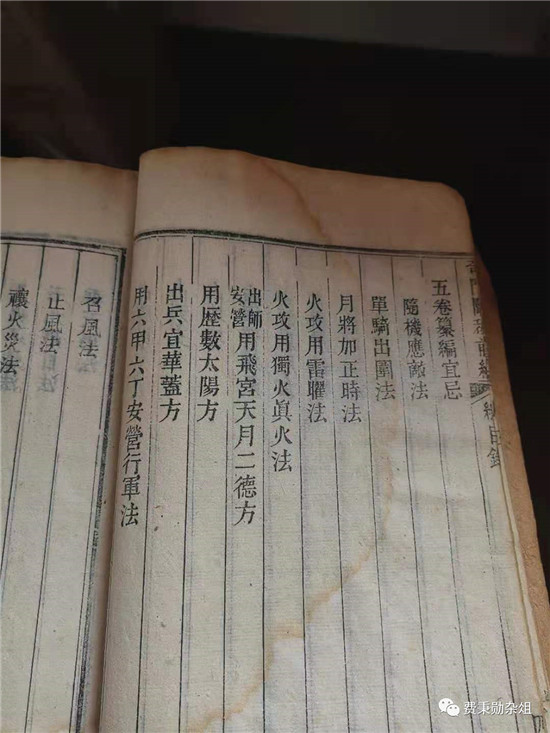 五卷纂編宜忌
隨機應敵法
單騎出圍法
月將加正時法
火攻用雷曜法
火攻用獨火眞火法
出師安營用飛宮天月二德方
用歷數太陽方
出兵宜華蓋方
用六甲六丁安營行軍法
召風法
止風法
禳火災法
费秉勋杂俎